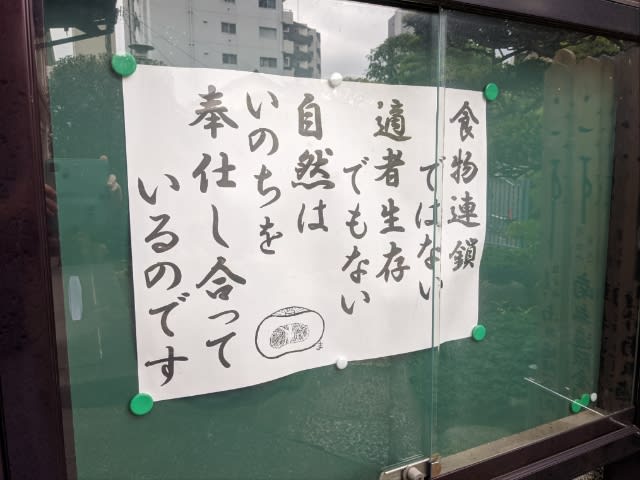 食物連鎖
ではない
適者生存
でもない
自然は
いのちを
奉仕し合って
いるのです
ま